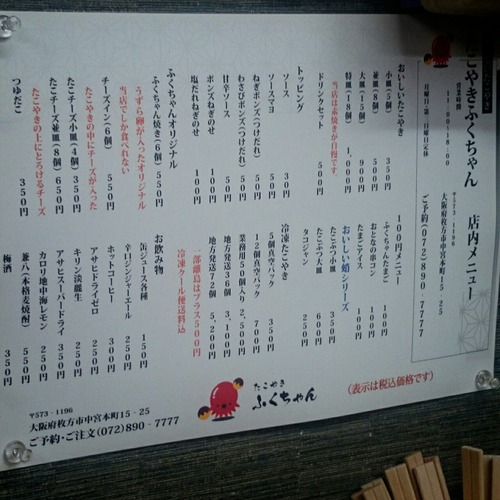 たこやきふくちゃん 店内メニュー
営業時間
11:00~18:00
月曜日・第三日曜日定休
〒573-1196
大阪府枚方市中宮本町15-25
ご予約(072)890-7777
おいしいたこやき
小風(5個) 350円
並風(8個) 500円
大風(15個) 900円
特風(18個) 1,000円
当店は素焼きが自慢です。
ドリンクセット 500円
トッピング
ソース 30円
ソースマヨ 50円
ねぎポンズ(つけだれ) 50円
わさびポンズ(つけだれ) 50円
甘辛ソース 50円
ポンズねぎのせ 100円
塩だれねぎのせ 100円
ふくちゃんオリジナル
ふくちゃん焼き(6個) 550円
うずら卵が入ったオリジナル
当店でしか食べれない
チーズイン(6個) 550円
たこやきの中にチーズが入った
たこチーズ小風(4個) 350円
たこチーズ並風(8個) 650円
たこやきの上にとろけるチーズ
つゆだこ 350円
100円メニュー
ふくちゃんたまご 100円
おとなの串コン 100円
たまごアイス 100円
おいしい蛸シリーズ
たこぶつ小風 350円
たこぶつ大風 600円
タコジャン 250円
冷凍たこやき
5個真空パック 300円
12個真空パック 700円
業務用50個入り 2,500円
地方発送36個 3,200円
地方発送72個 5,200円
一部離島はプラス500円
冷凍クール便送料込
お飲み物
缶ジュース各種 150円
辛口ジンジャーエール 250円
ホットコーヒー 300円
アサヒドライゼロ 250円
キリン淡麗生 300円
アサヒスーパードライ 350円
カロリ地中海レモン 250円
兼八(本格麦焼酎) 550円
梅酒 350円
(表示は税込価格です)
たこやき
ふくちゃん
〒573-1196
大阪府枚方市中宮本町15-25
ご予約・ご注文(072)890-7777